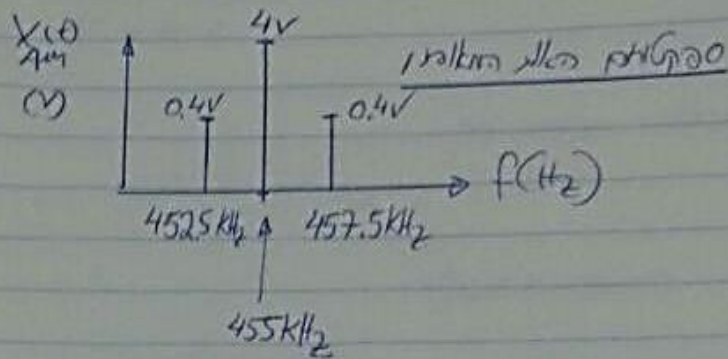 4V
X(t)
AM
(V)
ספקטרום האות המאופנן
0.4V
0.4V
f(Hz)
452.5kHz
457.5kHz
455kHz